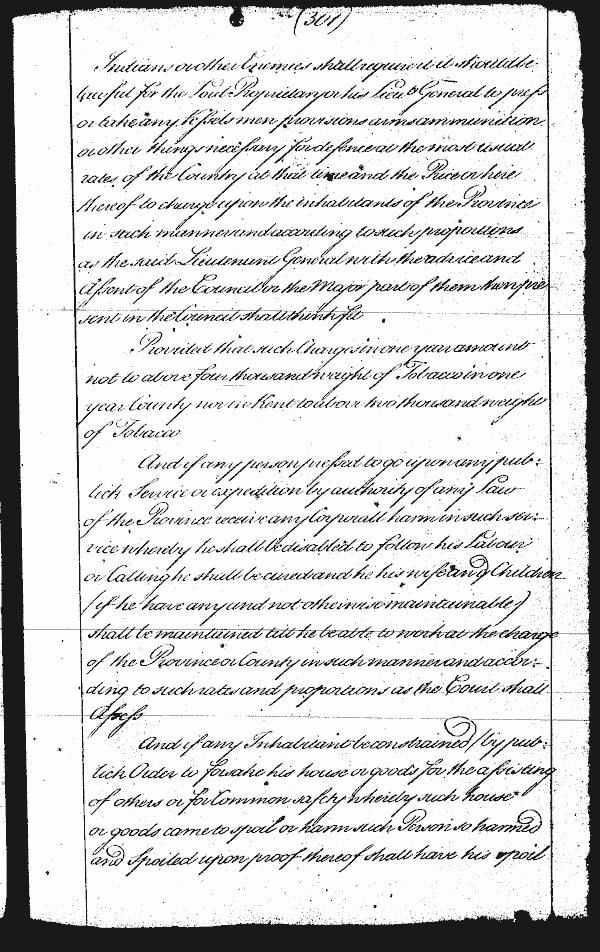 (301)
Indians or other Enemies shall require it it should be
lawful for the Lord Proprietary or his Lieut General to press
or take any Vessels men provisions arms ammunition
or other things necessary for defence at the most usual
rates of the Country at that time and the Price or hire
thereof to charge upon the inhabitants of the Province
in such manner and according to such proportions
as the said Lieutenant General with the advice and
Assent of the Council or the Major part of them then pre
sent in the Council shall think fit
Provided that such Charges in one year amount
not to above four thousand weight of Tobacco in one
year County nor in Kent to above two thousand weight
of Tobacco
And if any person pressed to go upon any pub:
lick Service or expedition by authority of any Law
of the Province receive any Corporall harm in such ser:
vice whereby he shall be disabled to follow his Labour
or Calling he shall be cured and he his wife and Children
(if he have any and not otherwise maintainable)
shall be maintained till he be able to work at the charge
of the Province or County in such manner and accor:
ding to such rates and proportions as the Court shall
Assess
And if any Inhabitant be constrained (by pub:
lick Order to forsake his house or goods for the assisting
of others or for Common safety whereby such house
or goods came to spoil or harm such Person so harmed
and Spoiled upon proof thereof shall have his spoil